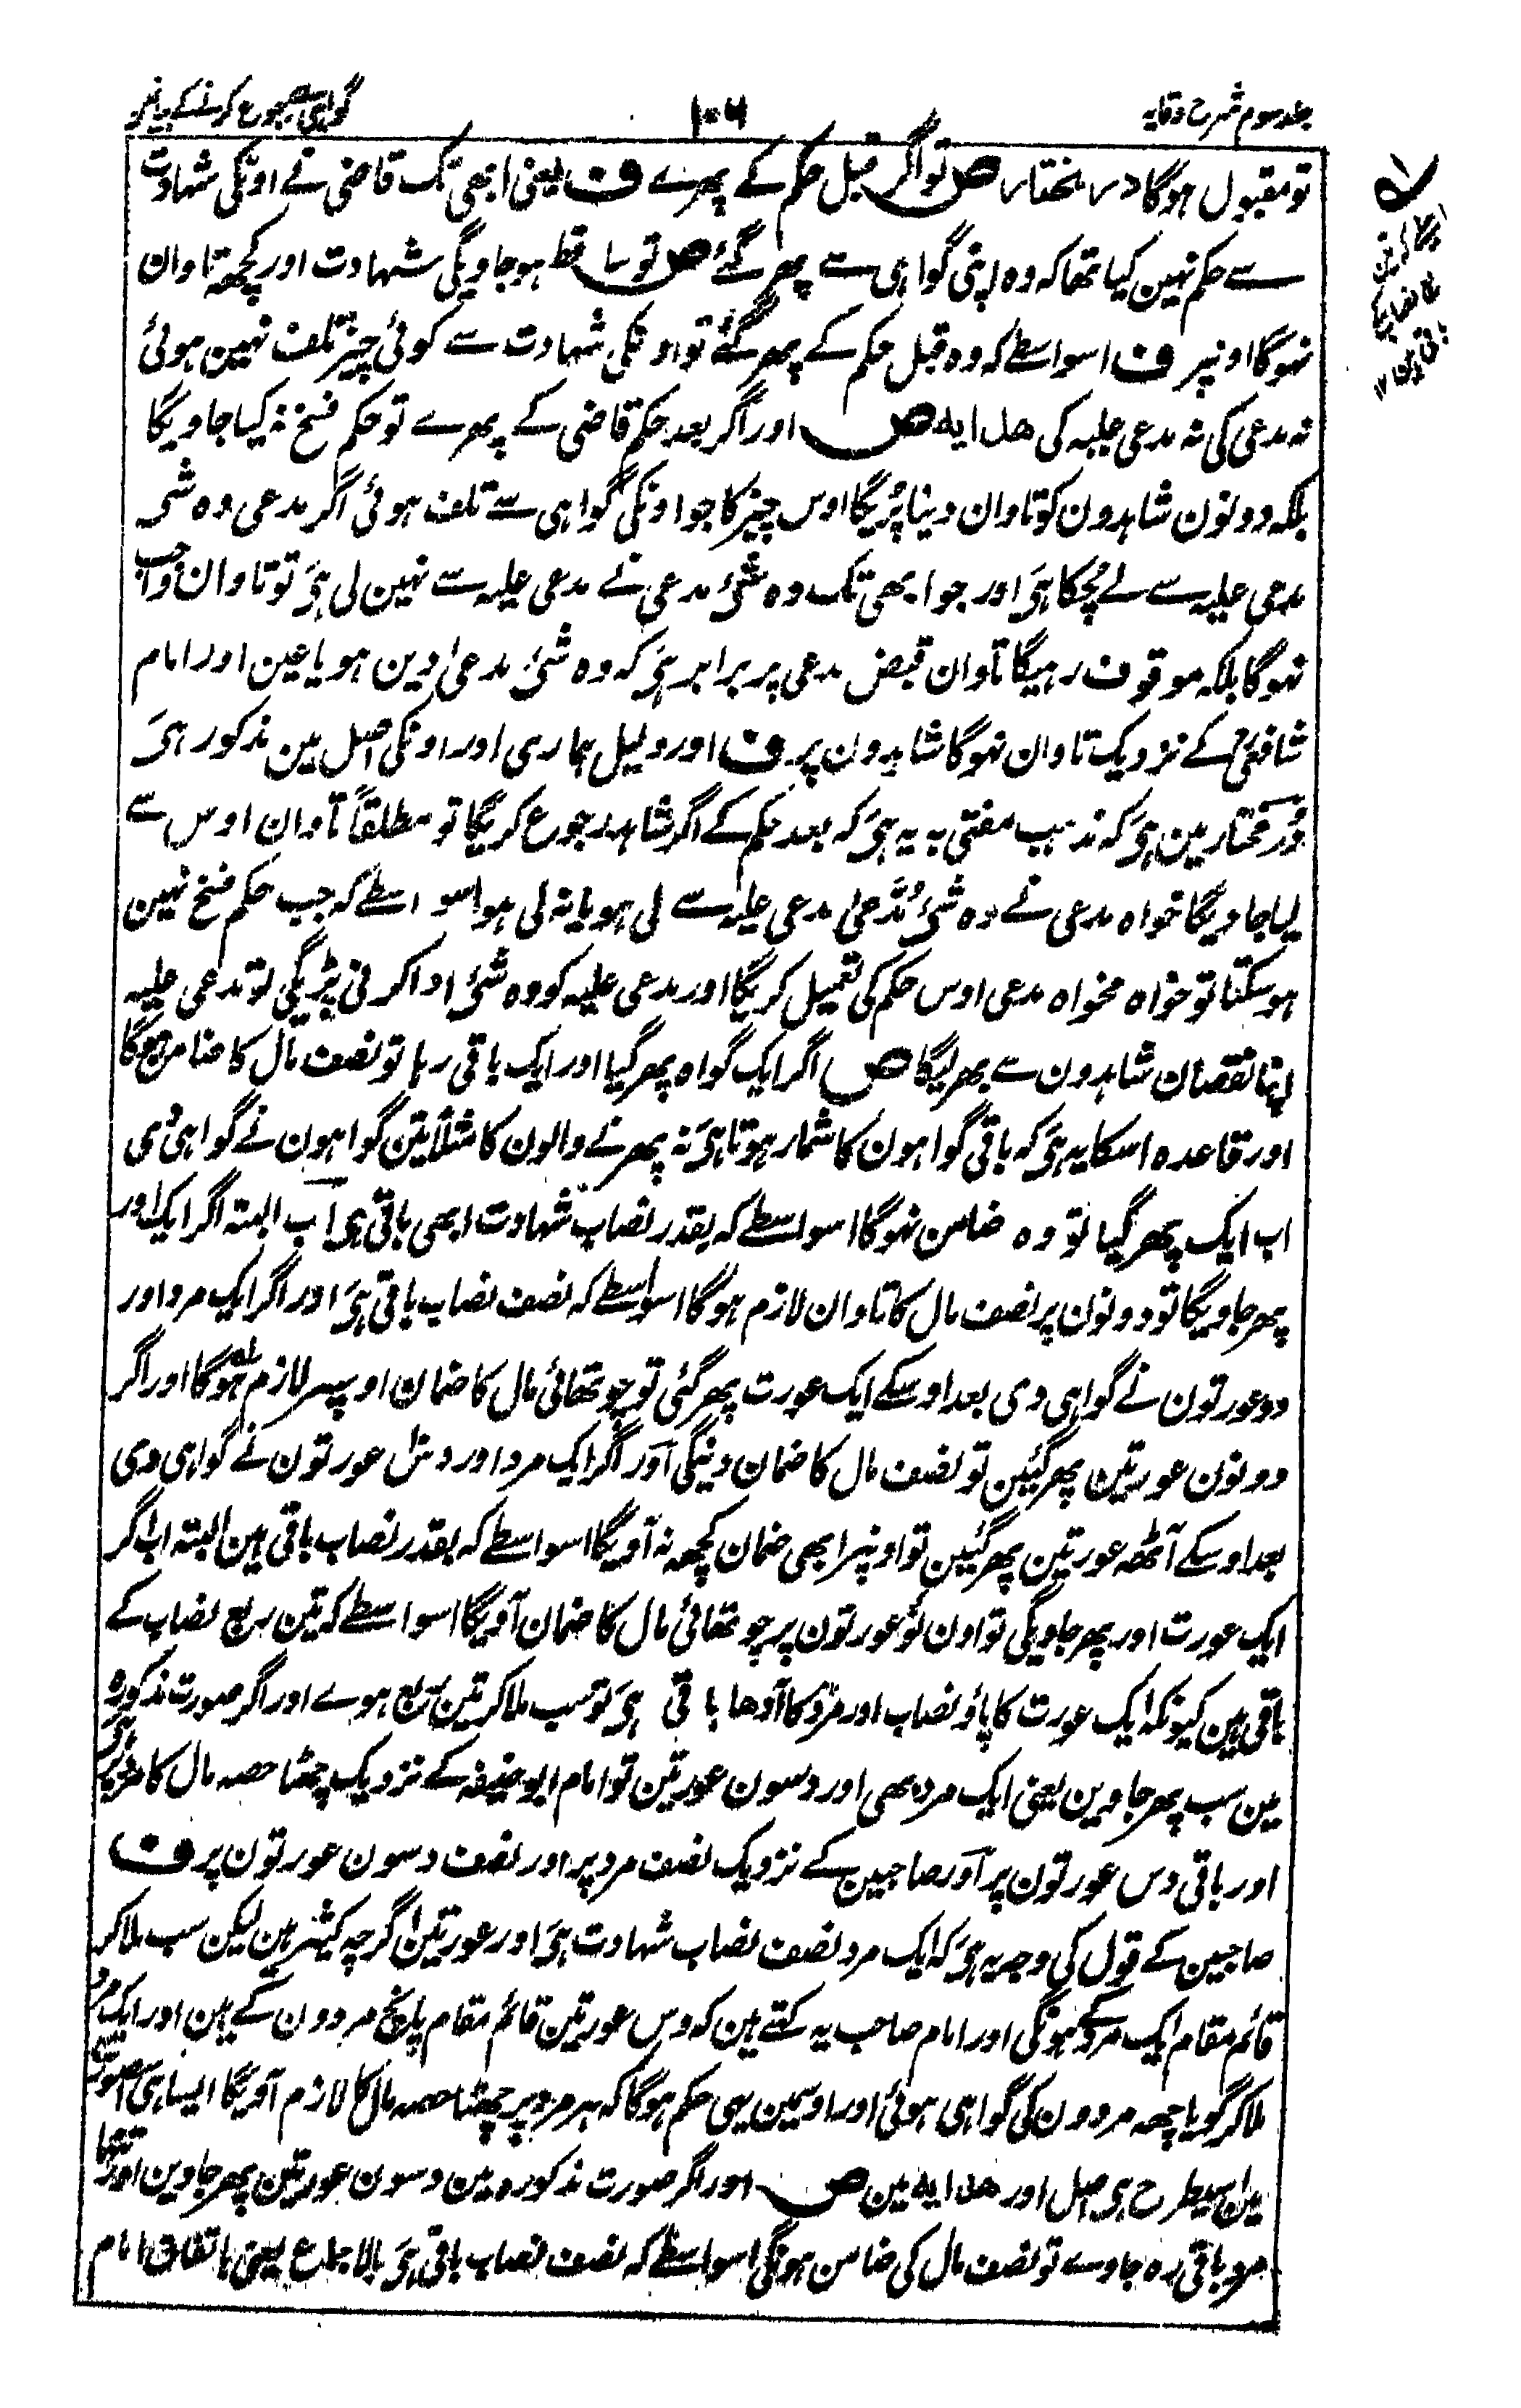 جلد سوم شرح وقایہ
۱۰۶
گواہی سے رجوع کرنے کے بیان میں
تو مقبول ہوگا درمختار ص تو اگر قبل حکم کے پھرے ف یعنی ابھی تک قاضی نے اونکی شہادت
سے حکم نہین کیا تھا کہ وہ اپنی گواہی سے پھر گئے ص تو ساقط ہو جاویگی شہادت اور کچھ تاوان
نہوگا اونپر ف اسواسطے کہ وہ قبل حکم کے پھر گئے تو اونکی شہادت سے کوئی چیز تلف نہین ہوئی
نہ مدعی کی نہ مدعی علیہ کی ھدایہ ص اور اگر بعد حکم قاضی کے پھرے تو حکم فسخ نہ کیا جاویگا
بلکہ دونون شاہدون کو تاوان دینا پڑیگا اوس چیز کا جو اونکی گواہی سے تلف ہوئی اگر مدعی وہ شی
مدعی علیہ سے لے چکا ہی اور جو ابھی تک وہ شئ مدعی نے مدعی علیہ سے نہین لی ہی تو تاوان واجب
نہوگا بلکہ موقوف رہیگا تاوان قبض مدعی پر برابر ہی کہ وہ شئ مدعیٰ دین ہو یا عین اور امام
شافعیؒ کے نزدیک تاوان نہوگا شاہدون پر ف اور دلیل ہماری اور اونکی اصل مین مذکور ہی
دُرّ مختار مین ہی کہ مذہب مفتی بہ یہ ہی کہ بعد حکم کے اگر شاہد رجوع کریگا تو مطلقاً تاوان اوس سے
لیا جاویگا خواہ مدعی نے وہ شئ مُدَّعیٰ مدعی علیہ سے لی ہو یا نہ لی ہو اسواسطے کہ جب حکم فسخ نہین
ہو سکتا تو خواہ مخواہ مدعی اوس حکم کی تعمیل کریگا اور مدعی علیہ کو وہ شئ ادا کرنی پڑیگی تو مدعی علیہ
اپنا نقصان شاہدون سے بھر لیگا ص اگر ایک گواہ پھر گیا اور ایک باقی رہا تو نصف مال کا ضامن ہوگا
اور قاعدہ اسکا یہ ہی کہ باقی گواہون کا شمار ہوتا ہی نہ پھرنے والون کا مثلاً تین گواہون نے گواہی دی
اب ایک پھر گیا تو وہ ضامن نہوگا اسواسطے کہ بقدر نصاب شہادت ابھی باقی ہی اب البتہ اگر ایک اور
پھر جاویگا تو دونون پر نصف مال کا تاوان لازم ہوگا اسواسطے کہ نصف نصاب باقی ہی اور اگر ایک مرد اور
دو عورتون نے گواہی دی بعد اوسکے ایک عورت پھر گئی تو چوتھائی مال کا ضمان اوسپر لازم ہوگا اور اگر
دونون عورتین پھر گئین تو نصف مال کا ضمان دینگی اور اگر ایک مرد اور دس عورتون نے گواہی دی
بعد اوسکے آٹھ عورتین پھر گئین تو اونپر ابھی ضمان کچھ نہ آویگا اسواسطے کہ بقدر نصاب باقی ہین البتہ اب اگر
ایک عورت اور پھر جاویگی تو اون نو عورتون پر چوتھائی مال کا ضمان آویگا اسواسطے کہ تین ربع نصاب کے
باقی ہین کیونکہ ایک عورت کا پاؤ نصاب اور مرد کا آدھا باقی ہی تو سب ملاکر تین ربع ہوے اور اگر صورت مذکورہ
مین سب پھر جاوین یعنی ایک مرد بھی اور دسون عورتین تو امام ابو حنیفہ کے نزدیک چھٹا حصہ مال کا مرد پر ہی
اور باقی دس عورتون پر اور صاحبین کے نزدیک نصف مرد پر اور نصف دسون عورتون پر ف
صاحبین کے قول کی وجہ یہ ہی کہ ایک مرد نصف نصاب شہادت ہی اور عورتین اگرچہ کثیر ہین لیکن سب ملاکر
قائم مقام ایک مرد کے ہونگی اور امام صاحب یہ کہتے ہین کہ دس عورتین قائم مقام پانچ مردون کے ہین اور ایک مرد
ملاکر گویا چھہ مردون کی گواہی ہوئی اور اوسمین یہی حکم ہوگا کہ ہر مرد پر چھٹا حصہ مال کا لازم آویگا ایسا ہی اس صورت
مین اسیطرح ہی اصل اور ھدایہ مین ص اور اگر صورت مذکورہ مین دسون عورتین پھر جاوین اور تنہا
مرد باقی رہ جاوے تو نصف مال کی ضامن ہونگی اسواسطے کہ نصف نصاب باقی ہی بالاجماع یعنی باتفاق امام